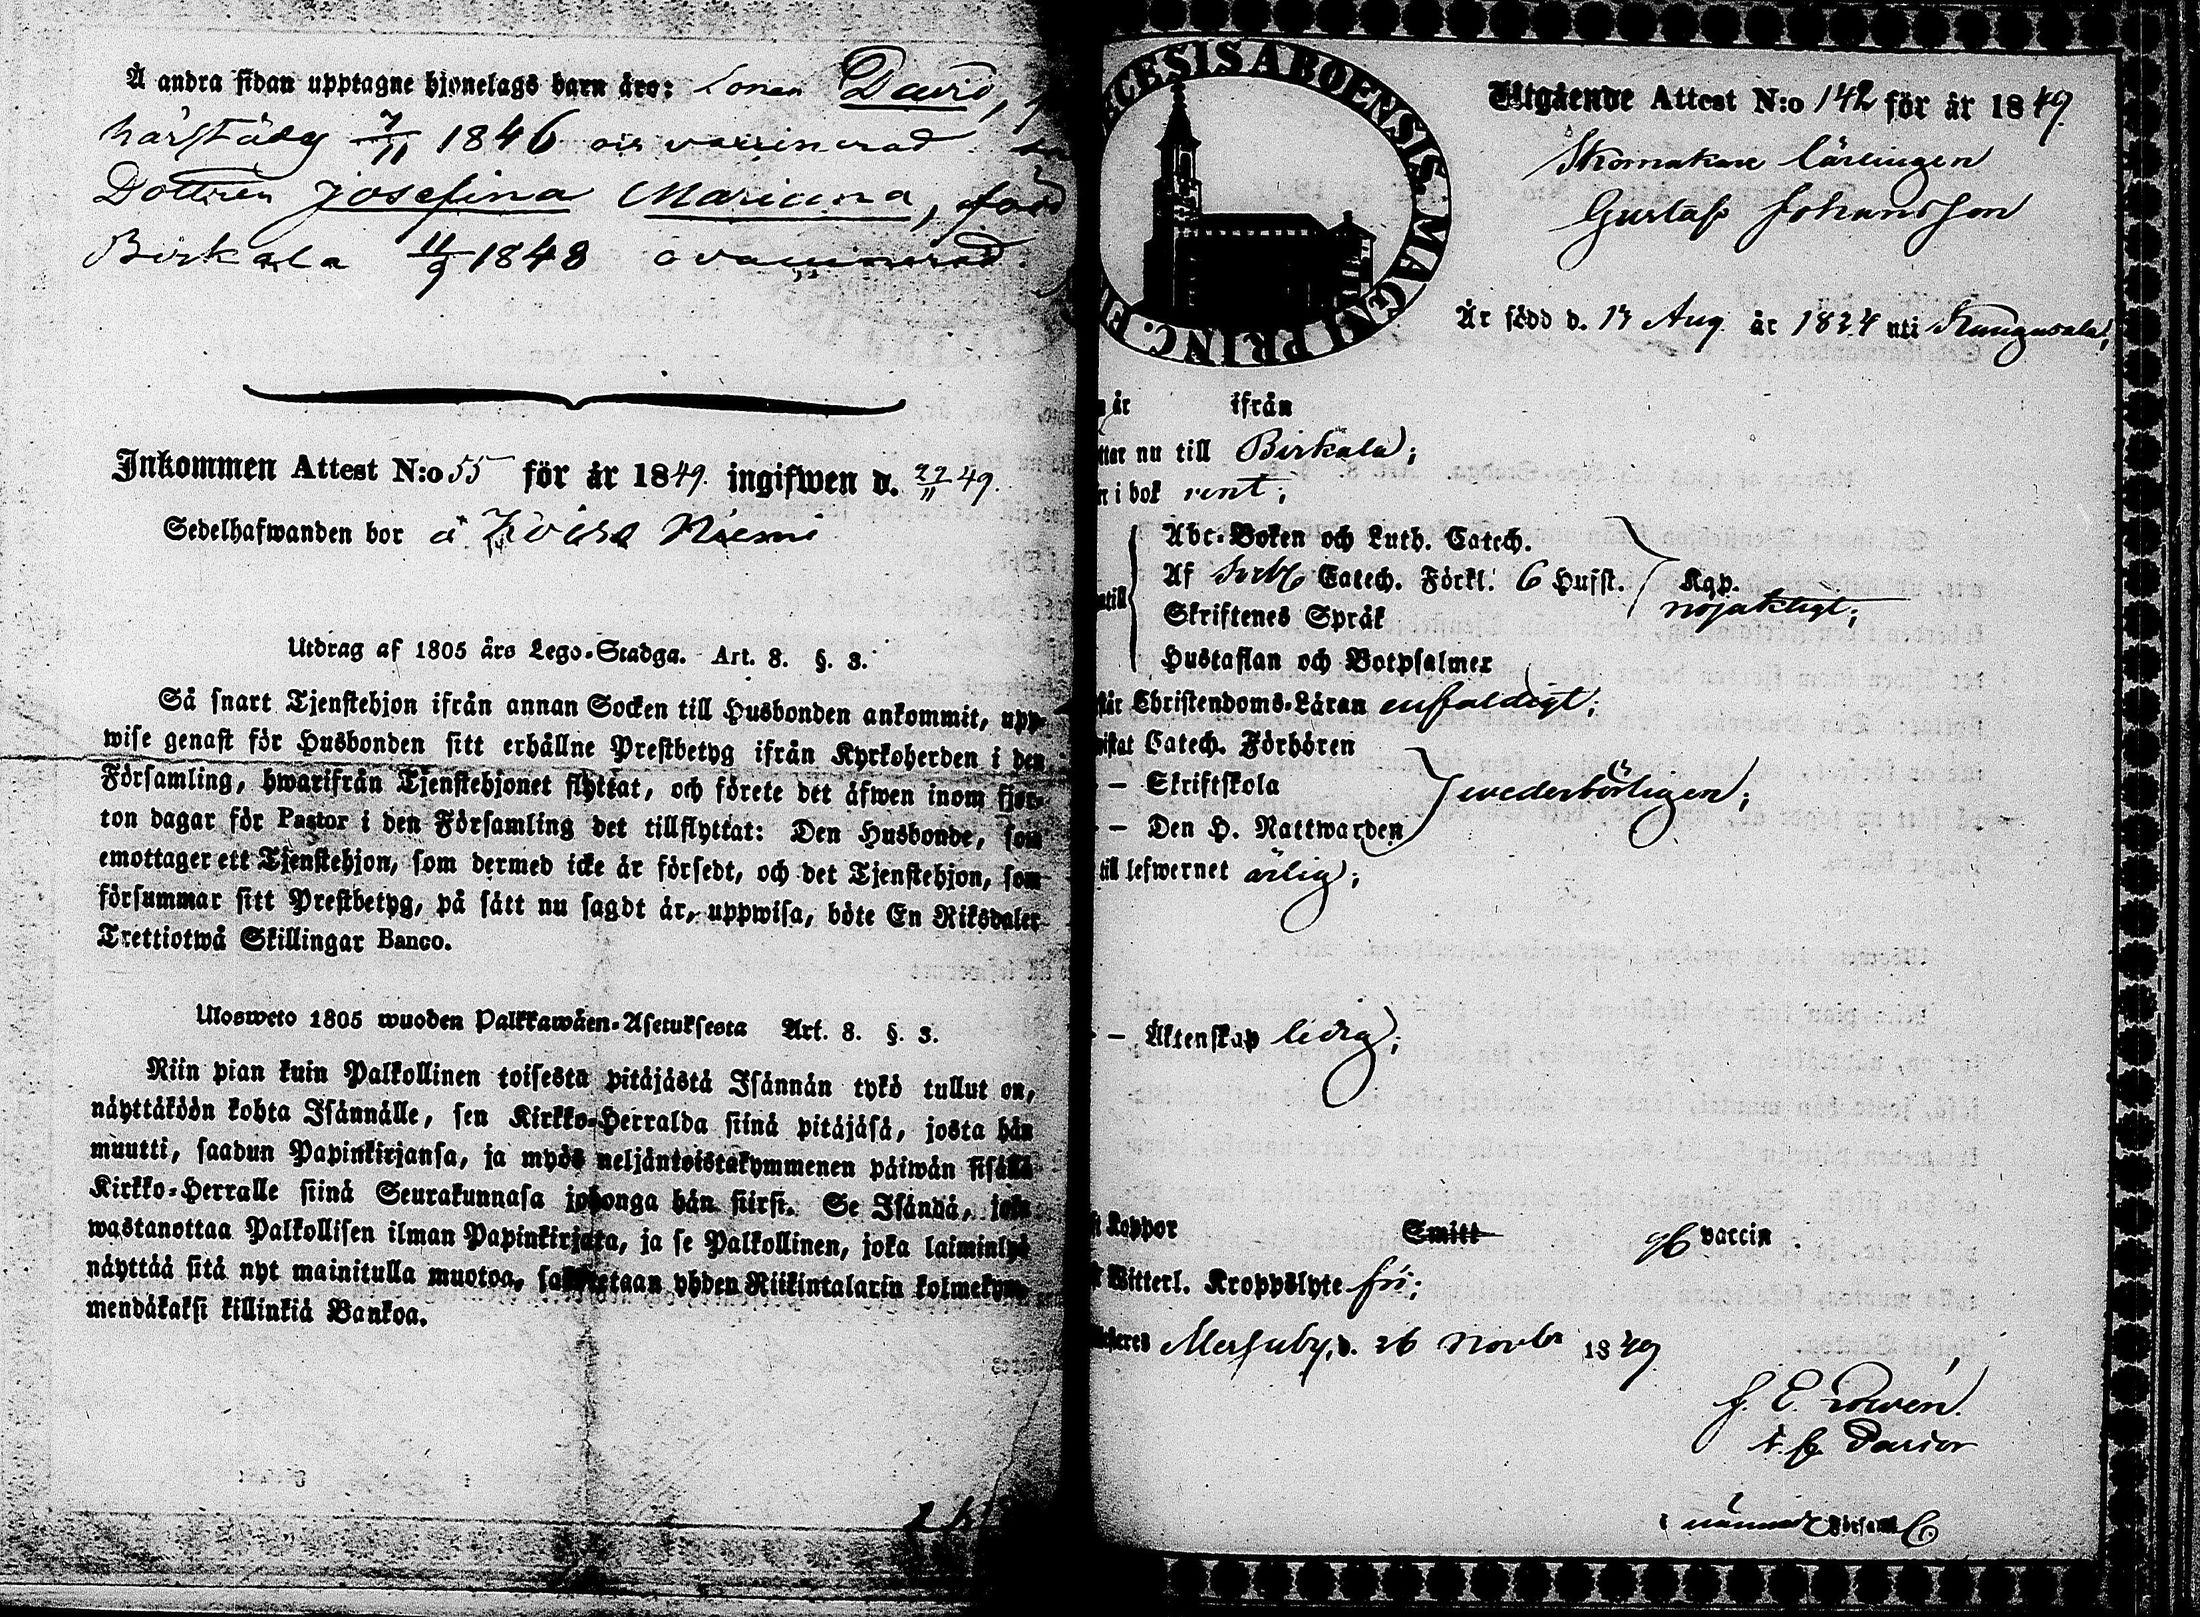 Å andra sidan upptagne hjonelags barn äro: Sonen David,
härstädes 7/11 1846 ovaccinerad
Dottren Josefina Mariana, född
Birkala 11/9 1848 ovaccinerad.
Inkommen Attest N:o 55 för år 1849. ingifwen d. 27/11 49.
Sedelhafwanden bor å Niemi
Utdrag af 1805 års Lego-Stadga. Art. 8. §. 3.
Så snart Tjenstehjon ifrån annan Socken till Husbonden ankommit, upp-
wise genast för Husbonden sitt erhållne Prestbetyg ifrån Kyrkoherden i den
Församling, hwarifrån Tjenstehjonet flyttat, och förete det äfwen inom fjor-
ton dagar för Pastor i den Församling det tillflyttat: Den Husbonde, som
emottager ett Tjenstehjon, som dermed icke är försedt, och det Tjenstehjon, som
försummar sitt Prestbetyg, på sätt nu sagdt är, uppwisa, böte En Riksdaler
Trettiotwå Skillingar Banco.
Ulosweto 1805 wuoden Palkkawäen-Asetuksesta Art. 8. §. 3.
Niin pian kuin Palkollinen toisesta pitäjästä Isännän tykö tullut on,
näyttäköön kohta Isännälle, sen Kirkko-Herralda siinä pitäjäsä, josta hän
muutti, saadun Papinkirjansa, ja myös neljäntoistakymmenen päiwän sisällä
Kirkko-Herralle siinä Seurakunnasa johonga hän siirsi. Se Isändä, joka
wastanottaa Palkollisen ilman Papinkirjata, ja se Palkollinen, joka laiminlyö
näyttää sitä nyt mainitulla muotoa, sakotetaan yhden Riikintalarin kolmekym-
mendäkaksi killinkiä Bankoa.
ECESIS ABOENSIS. MAGNI PRINC. FI
Utgående Attest N:o 142 för år 1849.
Skomakare Lärlingen
Gustaf Johansson
Är född d. 13 Aug. år 1824 uti Kangasala;
år ifrån
ttar nu till Birkala;
n i bok rent;
Abc-Boken och Luth. Catech.
Af Svebs Catech. Förkl. 6 Hufst. Kap.
ntill nöjaktigt;
Skriftenes Språk
Hustaflan och Botpsalmer
står Christendoms-Läran enfaldigt;
wistat Catech. Förhören
– – Skriftskola wederbörligen;
– – Den H. Nattwarden
till lefwernet ärlig;
– – Äktenskap ledig;
ft Koppor Smitt gb vaccin.
r Witterl. Kroppslyte fri;
steres Messuby, d. 26 Novbr 1849
J. E.
t. f. Pastor
i nämnde Församl.